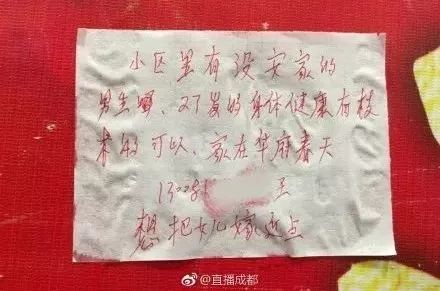 小区里有没安家的
男生嘛、27岁的身体健康有技
术的可以、家在华府春天
130081 王
想把女儿嫁近点
@直播成都